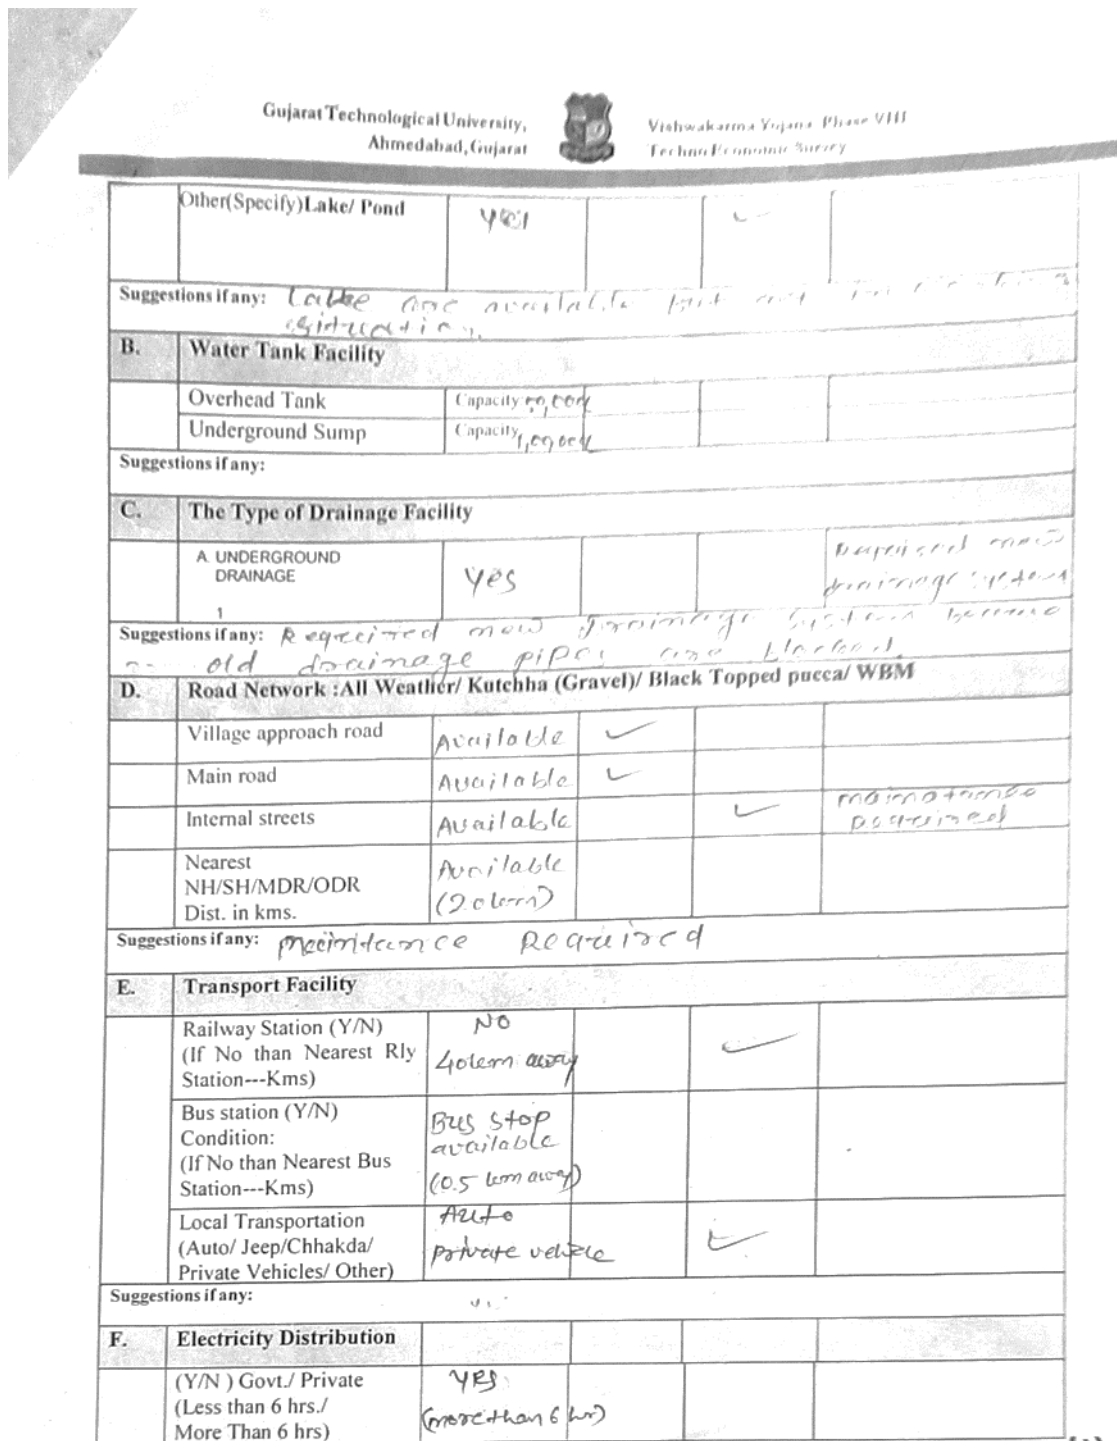 Gujarat Technological University,
Ahmedabad, Gujarat
Vishwakarma Yojana Phase VIII
Techno Economic Survey
Other(Specify)Lake/ Pond
Yes
Suggestions if any: are available but not in
B. Water Tank Facility
Overhead Tank Capacity
Underground Sump Capacity
Suggestions if any:
C. The Type of Drainage Facility
A. UNDERGROUND
DRAINAGE
1
Yes
new
drainage system
Suggestions if any: Required new drainage system because
old drainage pipes are blocked.
D. Road Network :All Weather/ Kutchha (Gravel)/ Black Topped pucca/ WBM
Village approach road Available ✓
Main road Available ✓
Internal streets Available ✓
Nearest
NH/SH/MDR/ODR
Dist. in kms.
Available
Suggestions if any: Required
E. Transport Facility
Railway Station (Y/N)
(If No than Nearest Rly
Station---Kms)
NO
40km away
✓
Bus station (Y/N)
Condition:
(If No than Nearest Bus
Station---Kms)
Bus stop
available
(0.5 km away)
Local Transportation
(Auto/ Jeep/Chhakda/
Private Vehicles/ Other)
Auto
private vehicle
✓
Suggestions if any:
F. Electricity Distribution
(Y/N ) Govt./ Private
(Less than 6 hrs./
More Than 6 hrs)
Yes
(more than 6 hr)